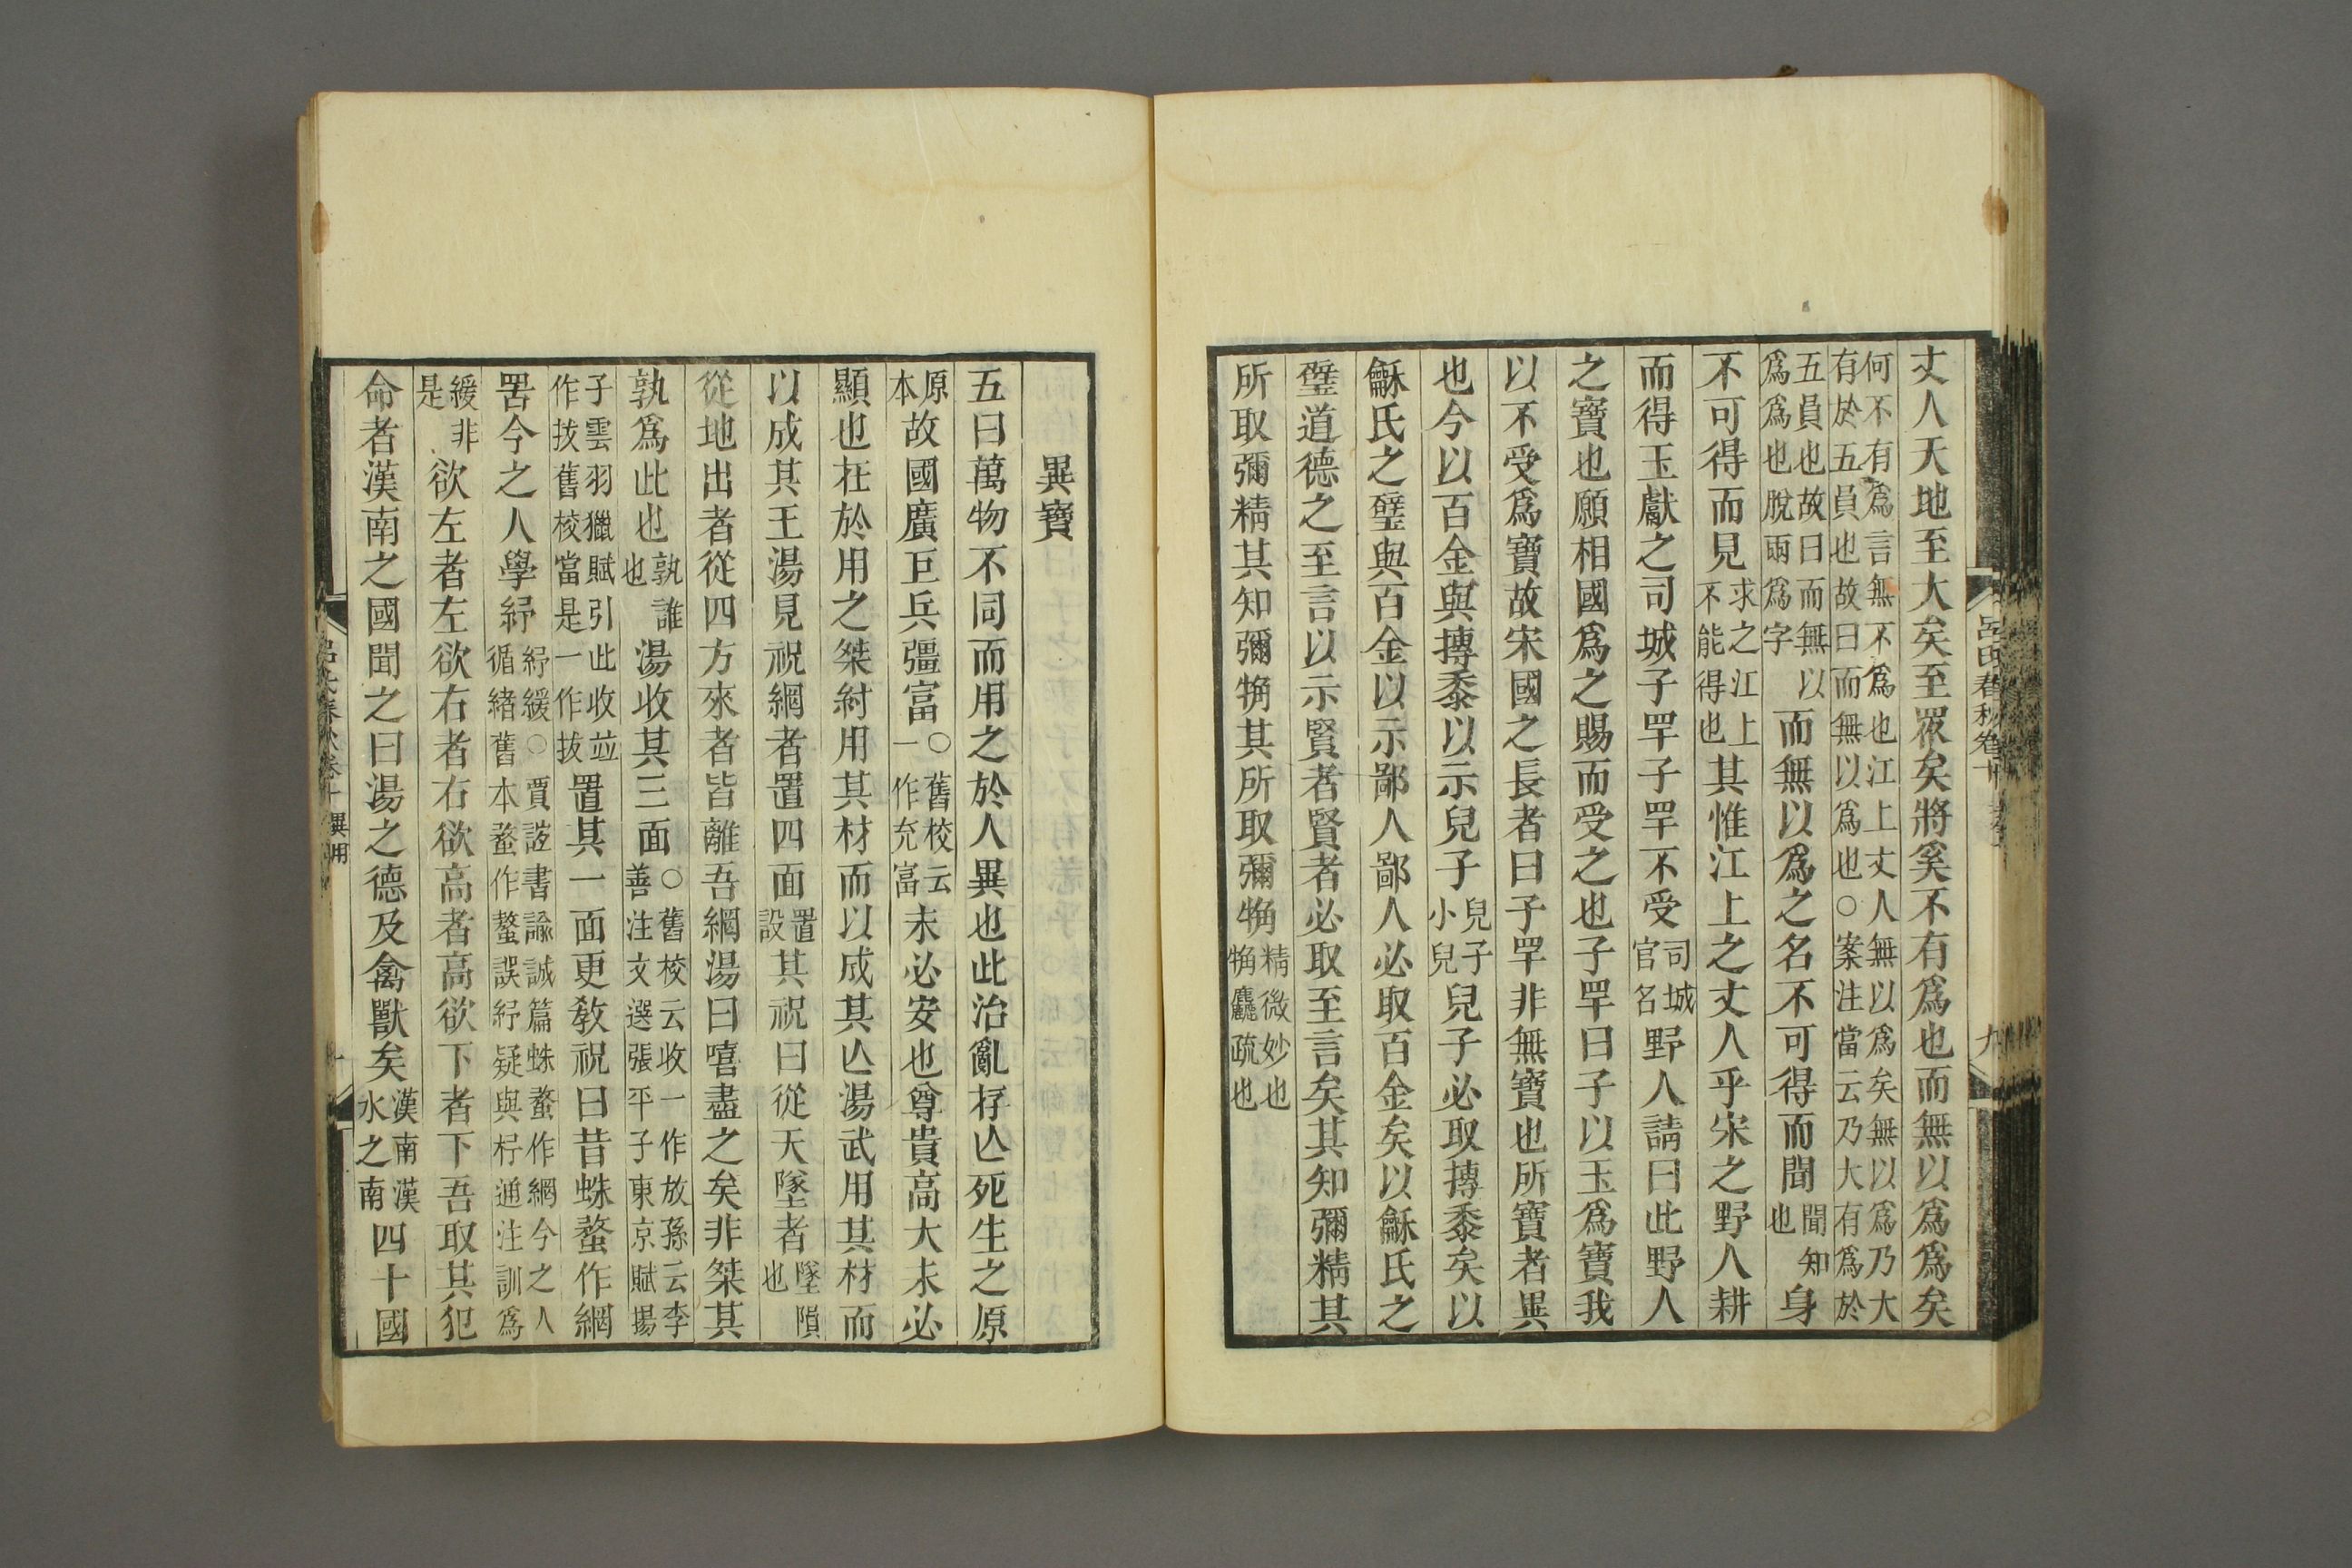 丈人天地至大矣至眾矣將奚不有爲也而無以爲爲矣
何不有爲言無不爲也江上丈人無以爲矣無以爲乃大
有於五員也故曰而無以爲也○案注當云乃大有爲於
五員也故曰而無以
爲爲也脫兩爲字
而無以爲之名不可得而聞
聞知
也
身
不可得而見
求之江上
不能得也
其惟江上之丈人乎宋之野人耕
而得玉獻之司城子罕子罕不受
司城
官名
野人請曰此野人
之寶也願相國爲之賜而受之也子罕曰子以玉爲寶我
以不受爲寶故宋國之長者曰子罕非無寶也所寶者異
也今以百金與摶黍以示兒子
兒子
小兒
兒子必取摶黍矣以
龢氏之璧與百金以示鄙人鄙人必取百金矣以龢氏之
璧道德之至言以示賢者賢者必取至言矣其知彌精其
所取彌精其知彌觕其所取彌觕
精微妙也
觕麤疏也
呂氏春秋卷十
九
異寶
五曰萬物不同而用之於人異也此治亂存亾死生之原
原
本
故國廣巨兵彊富
○舊校云
一作充富
未必安也尊貴高大未必
顯也在於用之桀紂用其材而以成其亾湯武用其材而
以成其王湯見祝網者置四面
置
設
其祝曰從天墜者
墜隕
也
從地出者從四方來者皆離吾網湯曰嘻盡之矣非桀其
孰爲此也
孰誰
也
湯收其三面
○舊校云收一作放孫云李
善注文選張平子東京賦揚
子雲羽獵賦引此收竝
作拔舊校當是一作拔
置其一面更敎祝曰昔蛛蝥作網
罟今之人學紓
紓緩○賈誼書諭誠篇蛛蝥作網今之人
循緒舊本蝥作螯誤紓疑與杼通注訓爲
緩非
是
欲左者左欲右者右欲高者高欲下者下吾取其犯
命者漢南之國聞之曰湯之德及禽獸矣
漢南漢
水之南
四十國
呂氏春秋卷十 異用
十